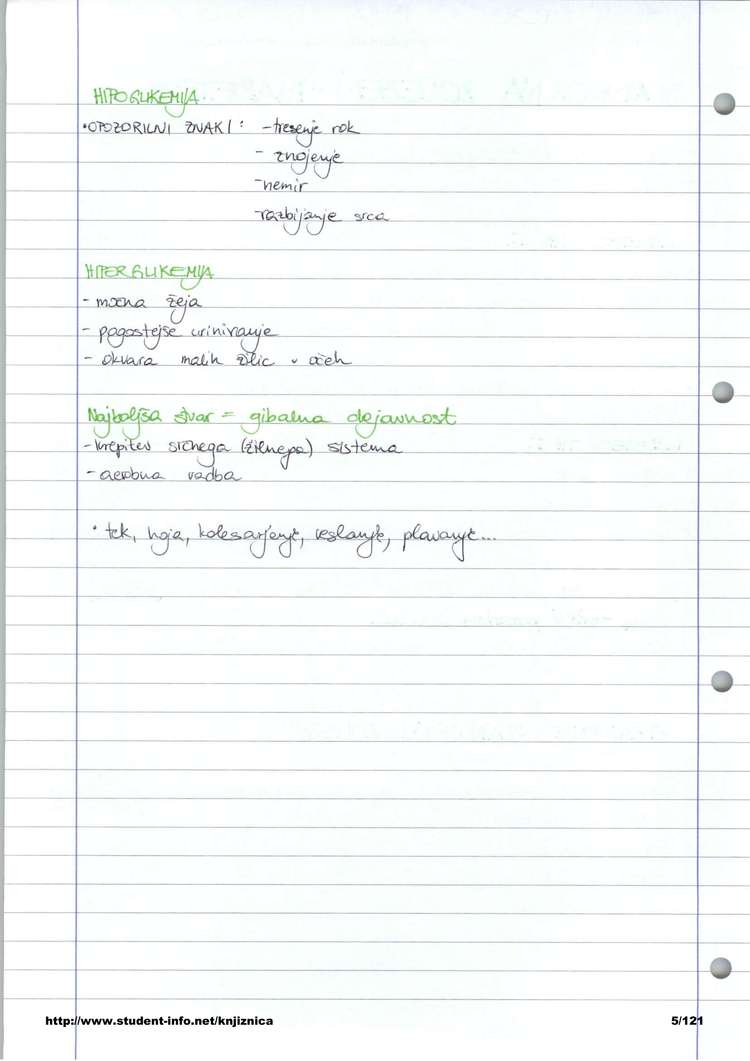 HIPOGLIKEMIJA
•OPOZORILNI ZNAKI: -tresenje rok
- znojenje
-nemir
-razbijanje srca
HIPERGLIKEMIJA
- močna žeja
- pogostejše uriniranje
- okvara malih žilic v očeh
Najboljša stvar = gibalna dejavnost
-krepitev srčnega (žilnega) sistema
- aerobna vadba
• tek, hoja, kolesarjenje, veslanje, plavanje...
http://www.student-info.net/knjiznica 5/121